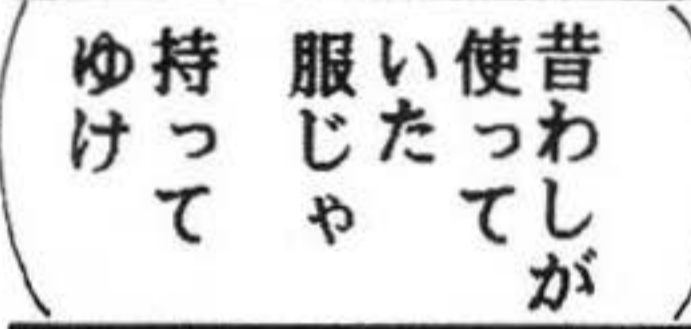 昔わしが
使って
いた
服じゃ
持って
ゆけ